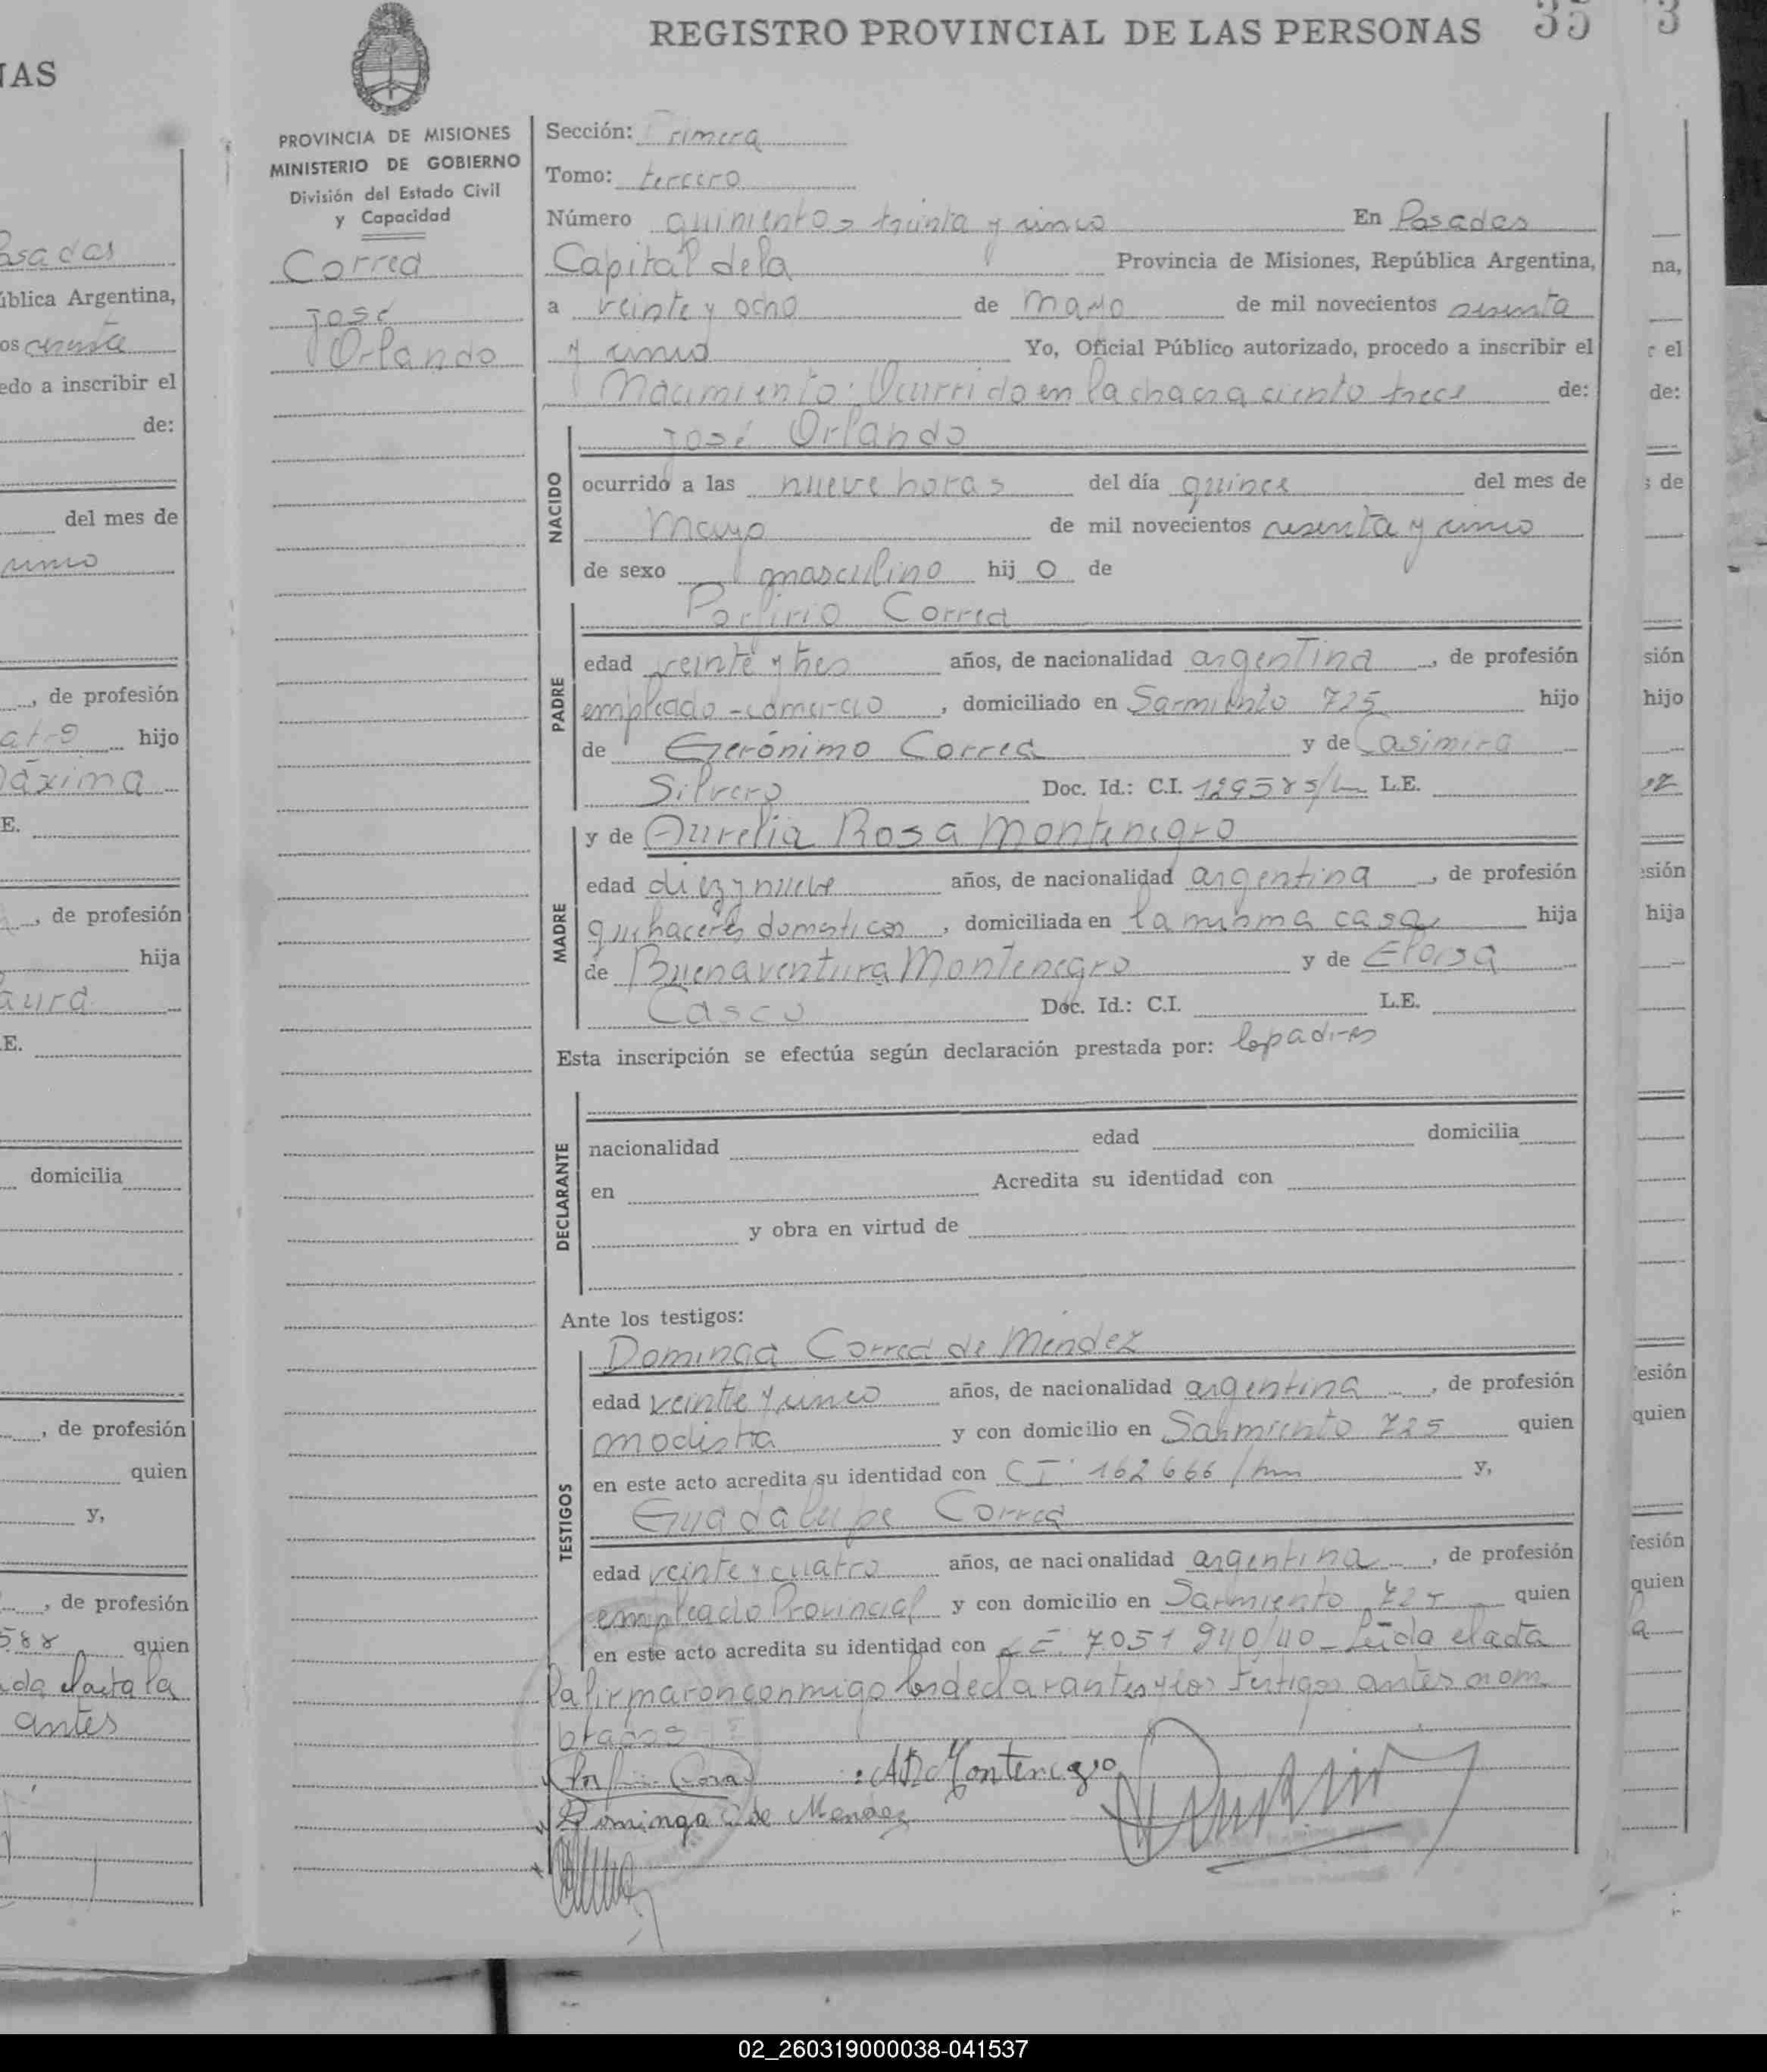 REGISTRO PROVINCIAL DE LAS PERSONAS 35
PROVINCIA DE MISIONES
MINISTERIO DE GOBIERNO
División del Estado Civil
y Capacidad
Correa
José
Orlando
Sección: Primera
Tomo: tercero
Número quinientos treinta y cinco En Posadas
Capital de la Provincia de Misiones, República Argentina,
a veinte y ocho de mayo de mil novecientos sesenta
y cinco Yo, Oficial Público autorizado, procedo a inscribir el
Nacimiento: Ocurrido en la chacra ciento trece de:
José Orlando
NACIDO
ocurrido a las nueve horas del día quince del mes de
Mayo de mil novecientos sesenta y cinco
de sexo masculino hij o de
Porfirio Correa
PADRE
edad veinte y tres años, de nacionalidad argentina, de profesión
empleado-comercio, domiciliado en Sarmiento 725 hijo
de Gerónimo Correa y de Casimira
Silvero Doc. Id.: C.I. L.E.
MADRE
y de Aurelia Rosa Montenegro
edad diez y nueve años, de nacionalidad argentina, de profesión
quehaceres domesticos, domiciliada en la misma casa hija
de Buenaventura Montenegro y de Eloisa
Casco Doc. Id.: C.I. L.E.
Esta inscripción se efectúa según declaración prestada por: los padres
DECLARANTE
nacionalidad edad domicilia
en Acredita su identidad con
y obra en virtud de
Ante los testigos:
TESTIGOS
Dominga Correa de Méndez
edad veinte y cinco años, de nacionalidad argentina, de profesión
modista y con domicilio en Sarmiento 725 quien
en este acto acredita su identidad con CI: 162666 y,
Guadalupe Correa
edad veinte y cuatro años, de nacionalidad argentina, de profesión
empleado Provincial y con domicilio en Sarmiento 725 quien
en este acto acredita su identidad con LE. 7051940/40 - Leída el acta
la firmaron conmigo los declarantes y los testigos antes nom
brados
Porfirio Correa A R Montenegro
Dominga C de Mendez
02_260319000038-041537